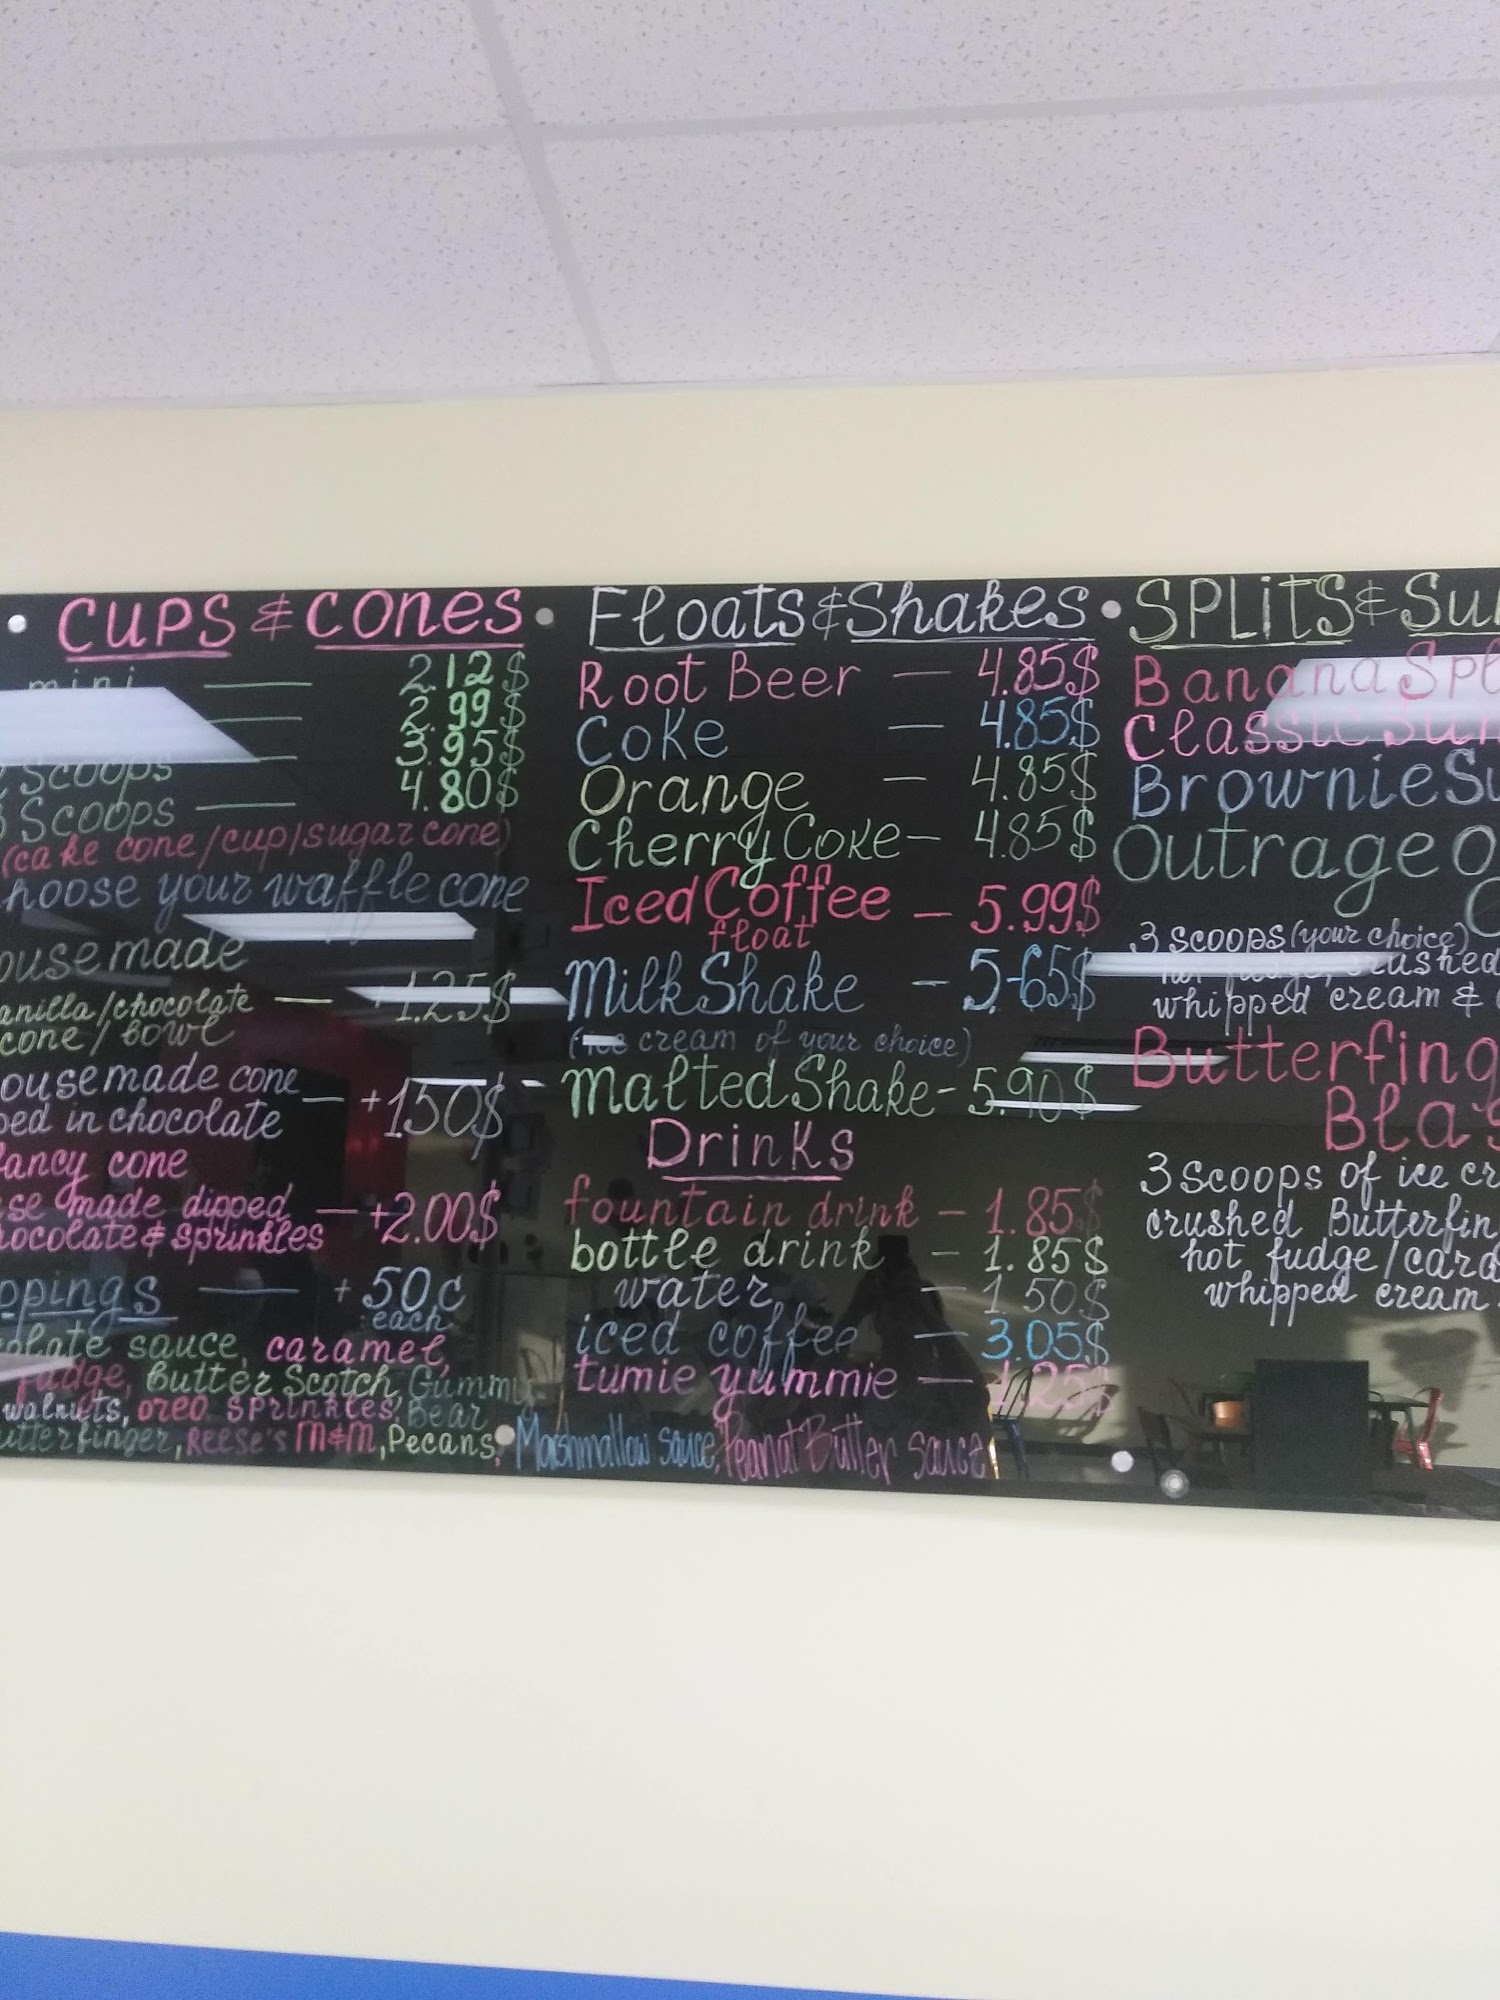 CUPS & CONES
mini — 2.12$
— 2.99$
Scoops — 3.95$
Scoops — 4.80$
(cake cone/cup/sugar cone)
your waffle cone
made
/chocolate — +1.25$
cone/bowl
made cone — +1.50$
in chocolate
fancy cone
made dipped — +2.00$
& sprinkles
— + 50c
each
sauce, caramel,
fudge, Butter Scotch, Gummi
walnuts, oreo sprinkles Bear
REESE'S M&M, Pecans, Marshmallow sauce, Peanut Butter sauce
Floats & Shakes
Root Beer — 4.85$
Coke — 4.85$
Orange — 4.85$
Cherry Coke — 4.85$
Iced Coffee — 5.99$
float
Milk Shake — 5.65$
(ice cream of your choice)
Malted Shake - 5.90$
Drinks
fountain drink — 1.85$
bottle drink — 1.85$
water — 1.50$
iced coffee — 3.05$
tumie yummie — 1.25$
SPLitS &
Banana
Classic
Brownie
3 scoops (your choice)
whipped cream &
3 scoops of ice
crushed
hot fudge/
whipped cream